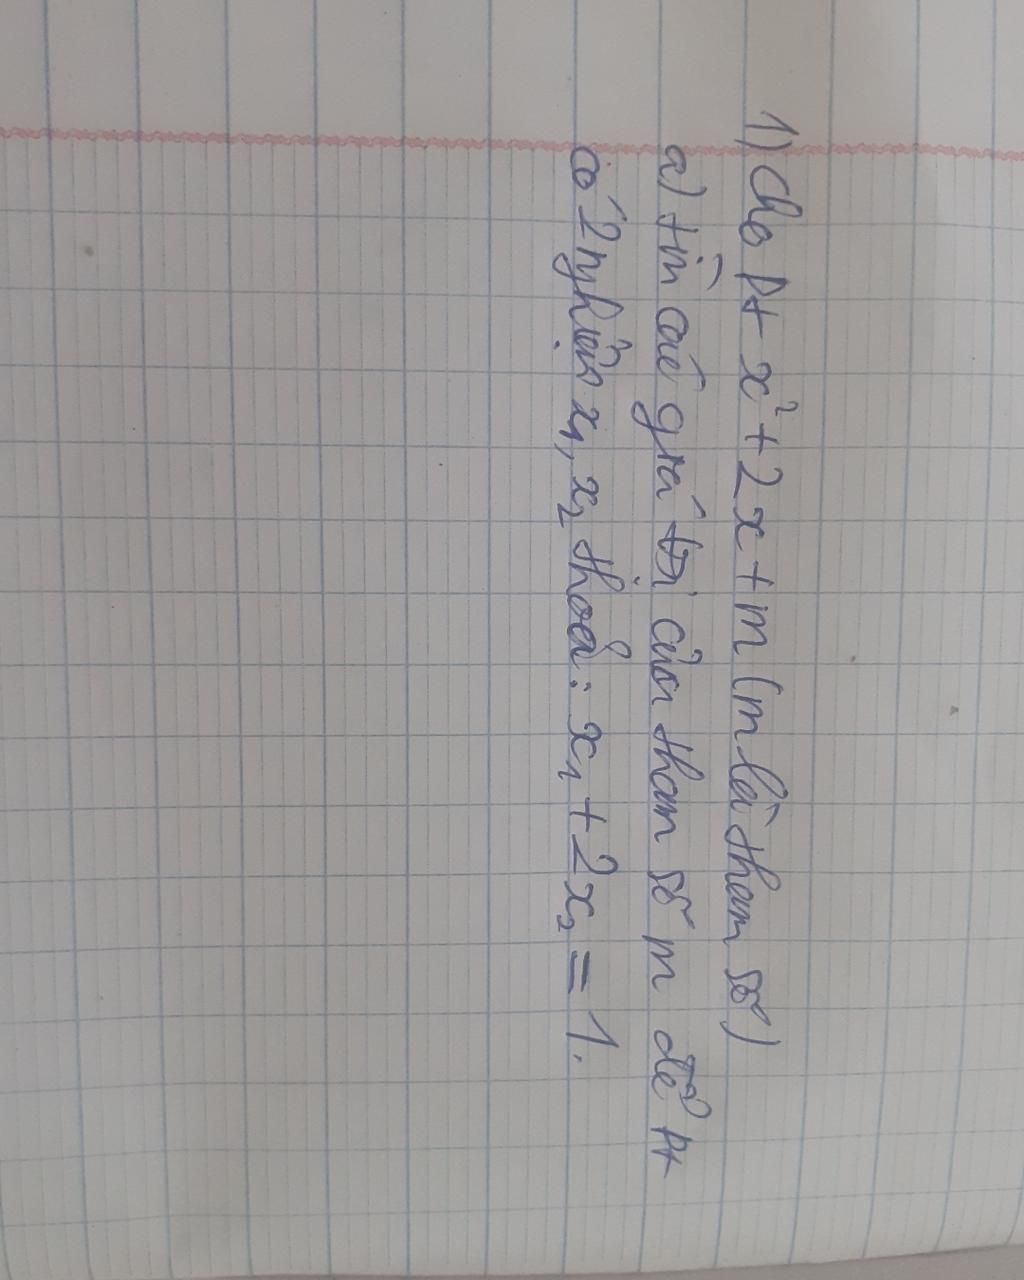 1) Cho pt x² + 2x + m (m là tham số)
a) tìm các giá trị của tham số m để pt
có 2 nghiệm x₁, x₂ thoả: x₁ + 2x₂ = 1.